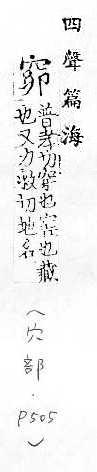 四聲篇海
窌
普孝切穿也窖也藏
也又力救切地名
(穴部·P505)